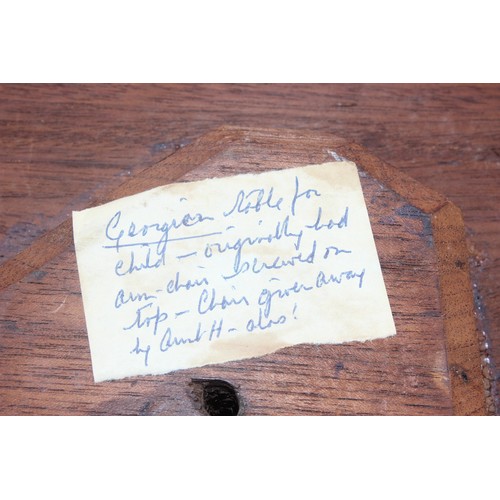 Georgian table for
child - originally had
arm-chair screwed on
top - Chair given away
by Aunt H - alas!